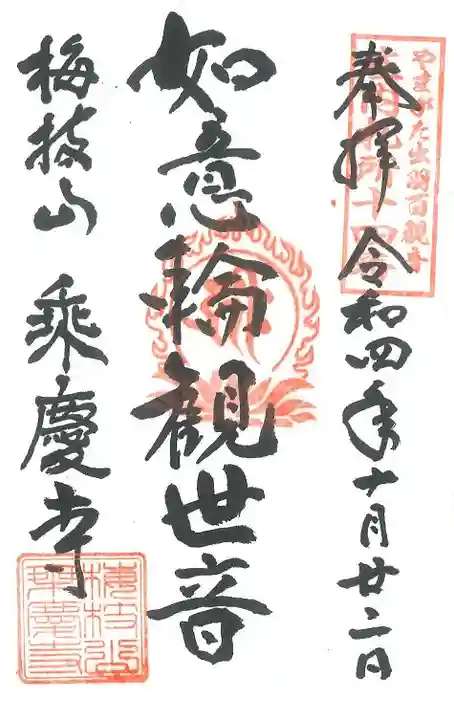 やまがた出羽百観音
奉拝 令和四年十月廿二日
如意輪観世音
梅枝山 乗慶寺
梅枝山
乗慶寺